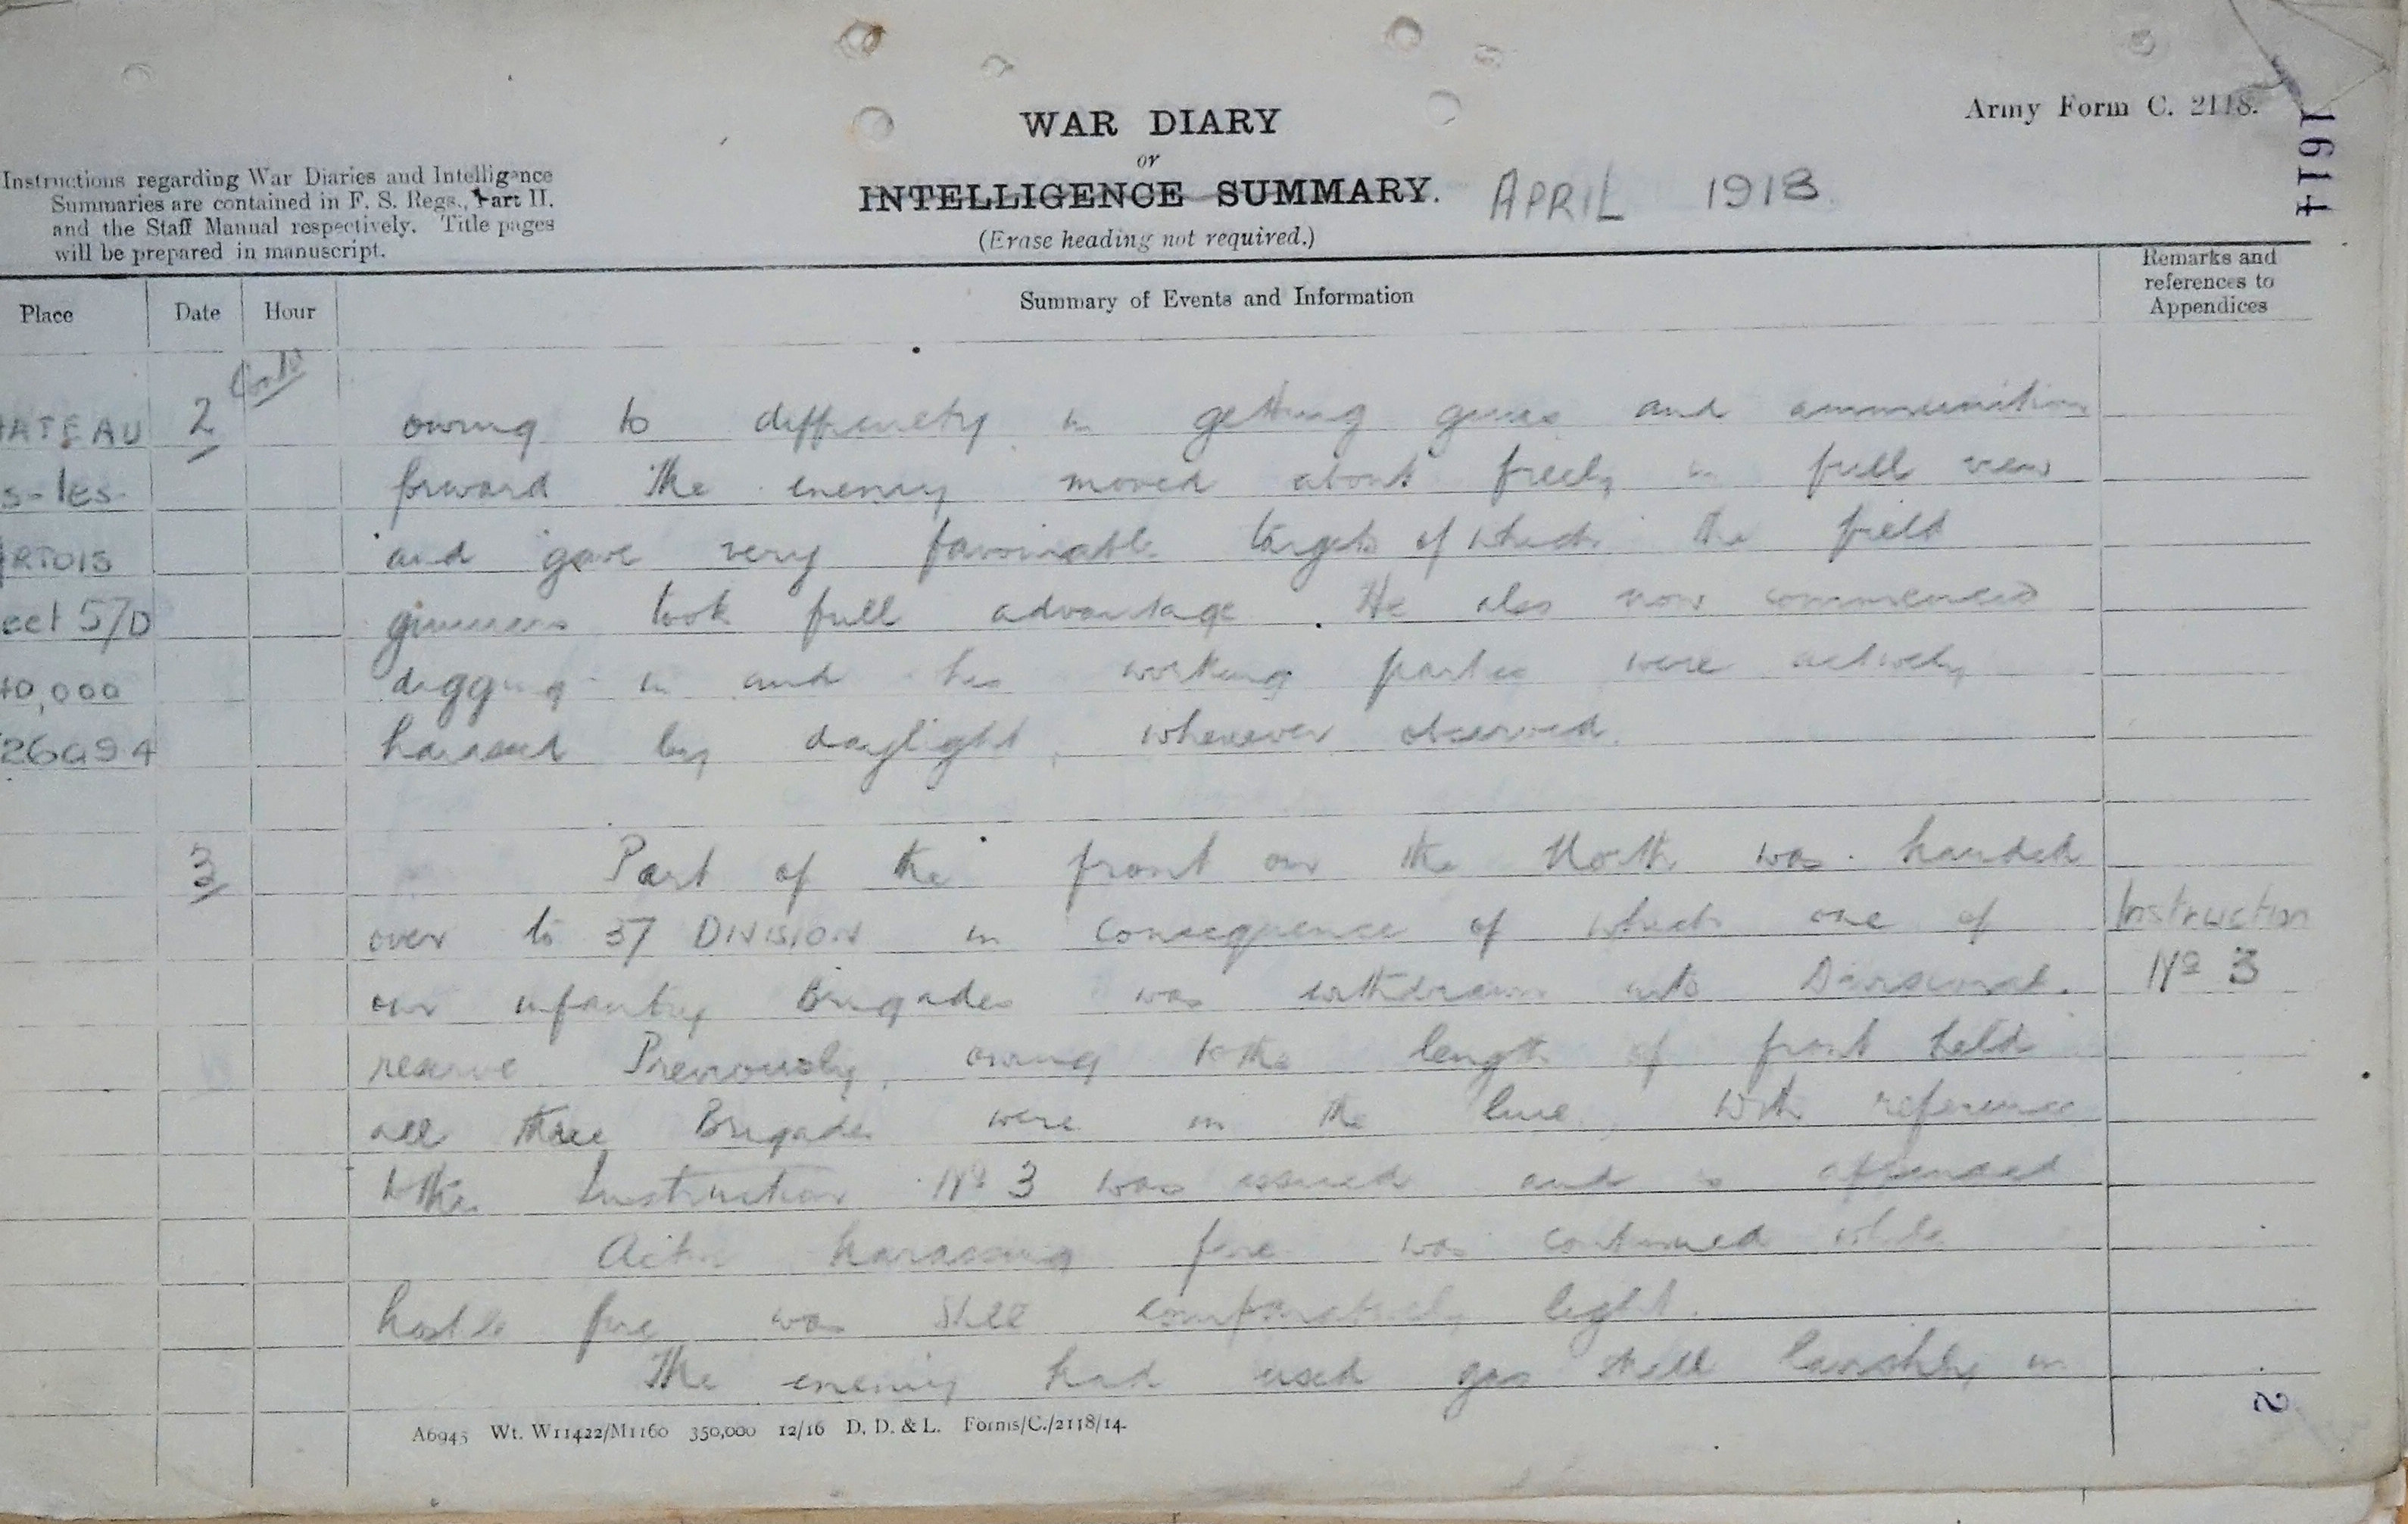 Army Form C. 2118.
1611
WAR DIARY
or
INTELLIGENCE SUMMARY. APRIL 1918.
(Erase heading not required.)
Instructions regarding War Diaries and Intelligence
Summaries are contained in F. S. Regs., Part II.
and the Staff Manual respectively. Title pages
will be prepared in manuscript.
Place Date Hour Summary of Events and Information Remarks and references to Appendices
Contd
ATEAU 2 owing to difficulty in getting guns and ammunition
s-les- forward the enemy moved about freely in full view
RTOIS and gave very favourable targets of which the field
eet 57D gunners took full advantage. He also now commenced
40,000 digging in and his working parties were actively
26a9.4 harassed by daylight, whenever observed.
3 Part of the front on the North was handed
over to 37 DIVISION in consequence of which one of Instruction
our infantry Brigades was withdrawn into Divisional. Nº 3
reserve Previously, owing to the length of front held
all three Brigades were in the line, With reference
to this Instruction Nº 3 was issued and is appended
Active harassing fire was continued while
hostile fire was still comparatively light.
The enemy had used gas shell lavishly in
2
A6945 Wt. W11422/M1160 350,000 12/16 D. D. & L. Forms/C./2118/14.